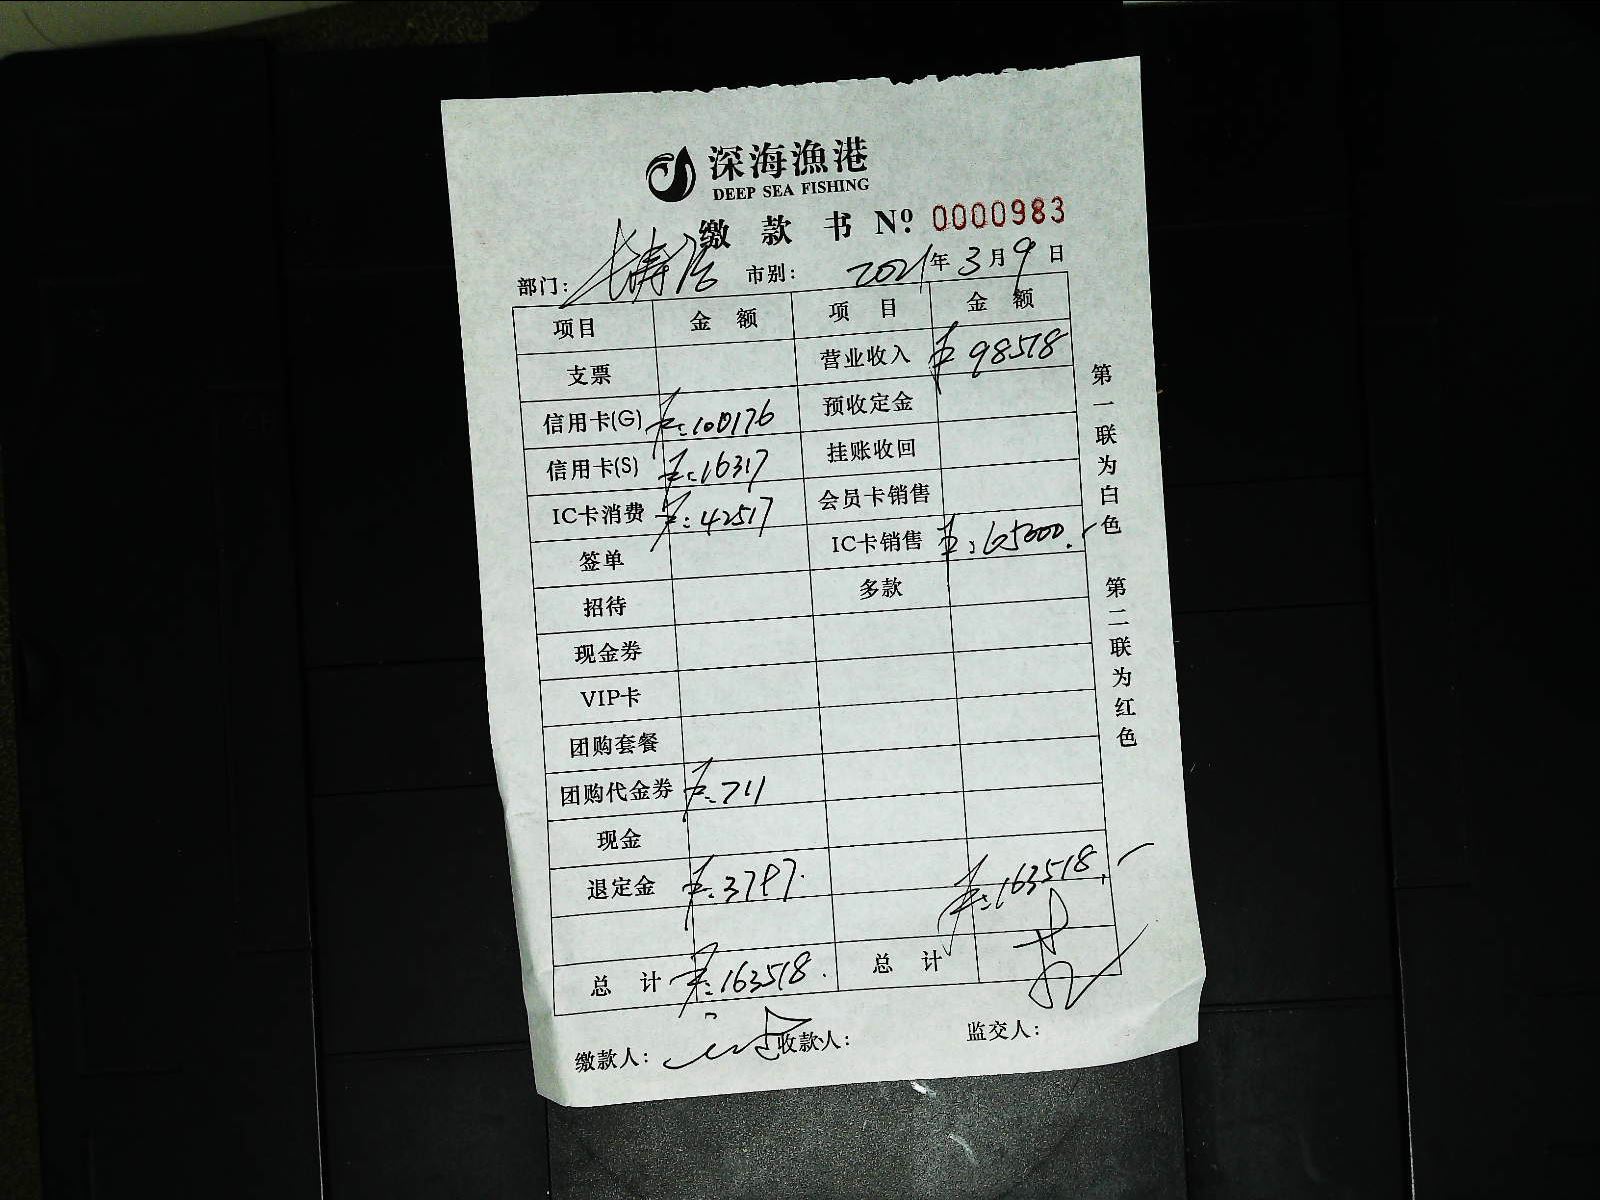 深海渔港
DEEP SEA FISHING
缴款书 Nº 0000983
部门: 长寿路 市别: 2021年3月9日
项目 金额 项目 金额
支票 营业收入 ¥98518
信用卡(G) ¥:100176 预收定金
信用卡(S) ¥:16317 挂账收回
IC卡消费 ¥:42517 会员卡销售
签单 IC卡销售 ¥:65000.-
招待 多款
现金券
VIP卡
团购套餐
团购代金券 ¥:711
现金
退定金 ¥:3797. ¥:163518.-
总计 ¥:163518. 总计
缴款人: 收款人: 监交人:
第一联为白色 第二联为红色